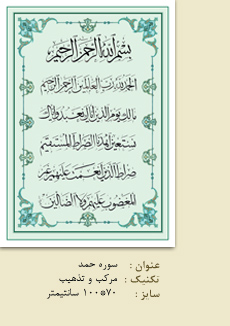 بسم الله الرحمن الرحیم
الحمد لله رب العالمین الرحمن الرحیم
مالک یوم الدین ایاک نعبد و ایاک
نستعین اهدنا الصراط المستقیم
صراط الذین انعمت علیهم غیر
المغضوب علیهم ولا الضالین
عنوان : سوره حمد
تکنیک : مرکب و تذهیب
سایز : ۷۰*۱۰۰ سانتیمتر